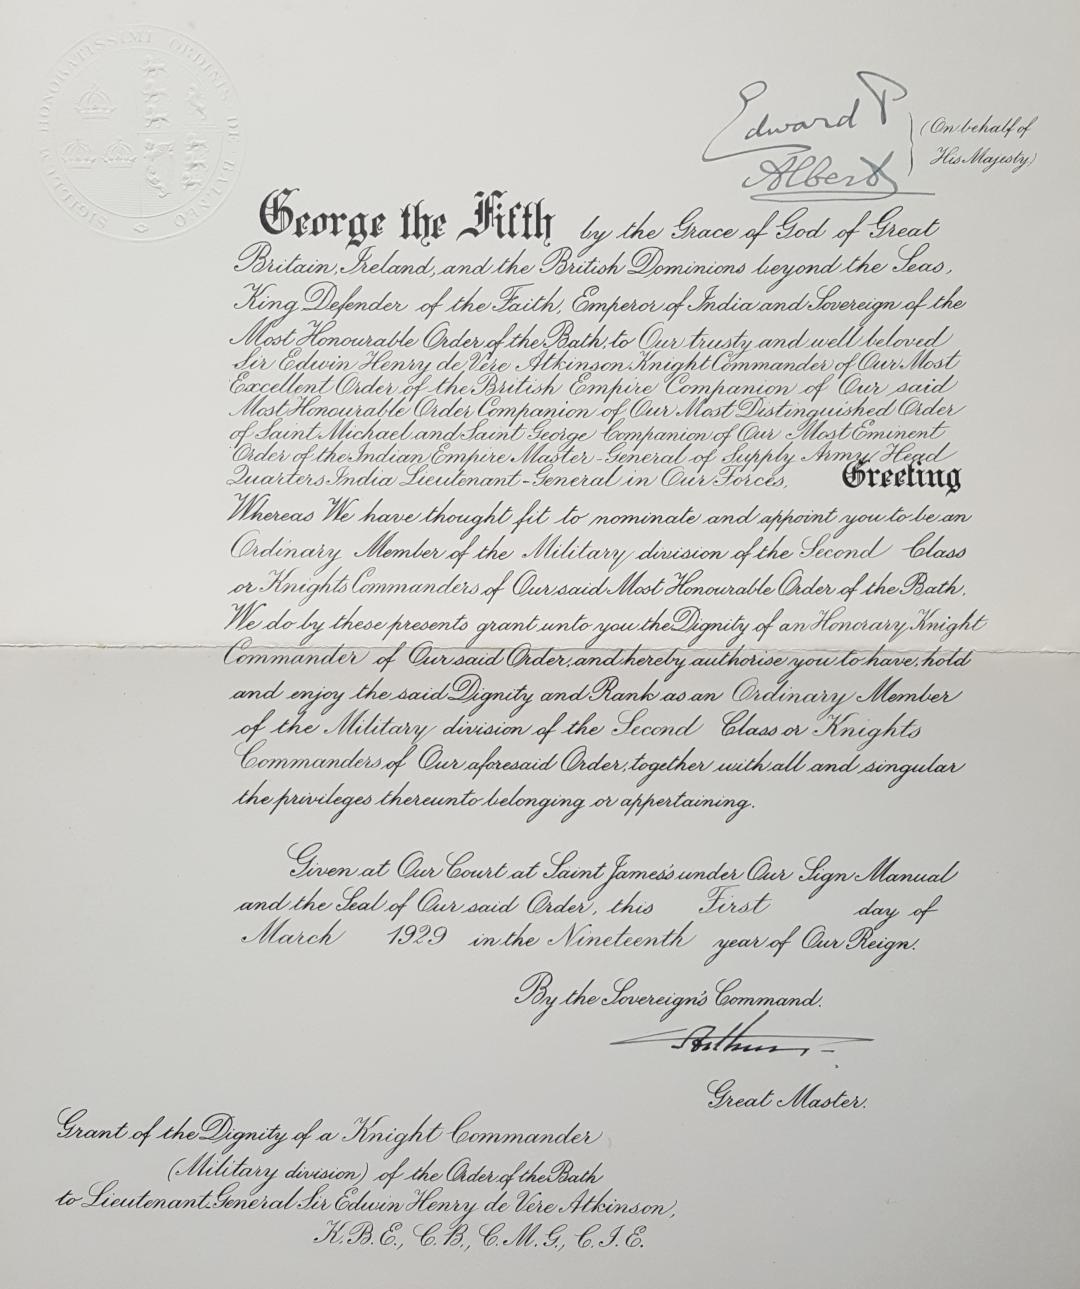 SIGILLUM HONORATISSIMI ORDINIS DE BALNEO
Edward P
Albert
(On behalf of
His Majesty)
George the Fifth by the Grace of God of Great
Britain, Ireland, and the British Dominions beyond the Seas,
King, Defender of the Faith, Emperor of India and Sovereign of the
Most Honourable Order of the Bath, to Our trusty and well beloved
Sir Edwin Henry de Vere Atkinson Knight Commander of Our Most
Excellent Order of the British Empire Companion of Our said
Most Honourable Order Companion of Our Most Distinguished Order
of Saint Michael and Saint George Companion of Our Most Eminent
Order of the Indian Empire Master-General of Supply Army Head
Quarters India Lieutenant-General in Our Forces, Greeting
Whereas We have thought fit to nominate and appoint you to be an
Ordinary Member of the Military division of the Second Class
or Knights Commanders of Our said Most Honourable Order of the Bath,
We do by these presents grant unto you the Dignity of an Honorary Knight
Commander of Our said Order, and hereby authorise you to have, hold
and enjoy the said Dignity and Rank as an Ordinary Member
of the Military division of the Second Class or Knights
Commanders of Our aforesaid Order, together with all and singular
the privileges thereunto belonging or appertaining.
Given at Our Court at Saint James's under Our Sign Manual
and the Seal of Our said Order, this First day of
March 1929 in the Nineteenth year of Our Reign.
By the Sovereign's Command.
Arthur
Great Master.
Grant of the Dignity of a Knight Commander
(Military division) of the Order of the Bath
to Lieutenant-General Sir Edwin Henry de Vere Atkinson,
K.B.E., C.B., C.M.G., C.I.E.